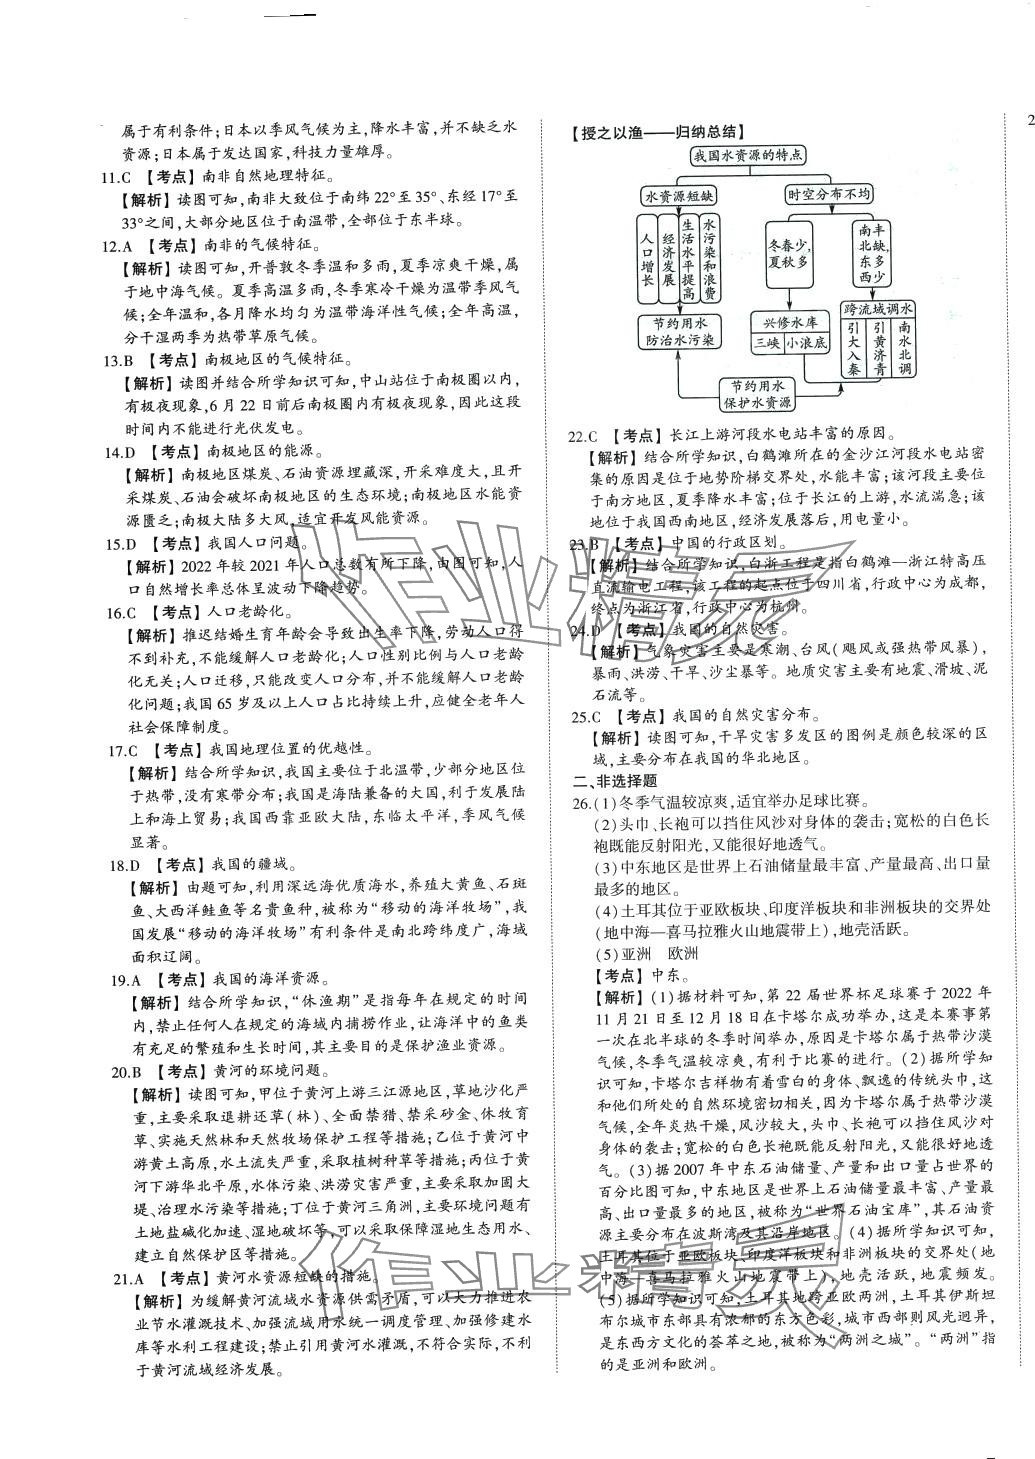 属于有利条件;日本以季风气候为主,降水丰富,并不缺乏水
资源;日本属于发达国家,科技力量雄厚。
11.C 【考点】南非自然地理特征。
【解析】读图可知,南非大致位于南纬22°至35°、东经17°至
33°之间,大部分地区位于南温带,全部位于东半球。
12.A 【考点】南非的气候特征。
【解析】读图可知,开普敦冬季温和多雨,夏季凉爽干燥,属
于地中海气候。夏季高温多雨,冬季寒冷干燥为温带季风气
候;全年温和,各月降水均匀为温带海洋性气候;全年高温,
分干湿两季为热带草原气候。
13.B 【考点】南极地区的气候特征。
【解析】读图并结合所学知识可知,中山站位于南极圈以内,
有极夜现象,6月22日前后南极圈内有极夜现象,因此这段
时间内不能进行光伏发电。
14.D 【考点】南极地区的能源。
【解析】南极地区煤炭、石油资源埋藏深,开采难度大,且开
采煤炭、石油会破坏南极地区的生态环境;南极地区水能资
源匮乏;南极大陆多大风,适宜开发风能资源。
15.D 【考点】我国人口问题。
【解析】2022年较2021年人口总数有所下降,由图可知,人
口自然增长率总体呈波动下降趋势。
16.C 【考点】人口老龄化。
【解析】推迟结婚生育年龄会导致出生率下降,劳动人口得
不到补充,不能缓解人口老龄化;人口性别比例与人口老龄
化无关;人口迁移,只能改变人口分布,并不能缓解人口老龄
化问题;我国65岁及以上人口占比持续上升,应健全老年人
社会保障制度。
17.C 【考点】我国地理位置的优越性。
【解析】结合所学知识,我国主要位于北温带,少部分地区位
于热带,没有寒带分布;我国是海陆兼备的大国,利于发展陆
上和海上贸易;我国西靠亚欧大陆,东临太平洋,季风气候
显著。
18.D 【考点】我国的疆域。
【解析】由题可知,利用深远海优质海水,养殖大黄鱼、石斑
鱼、大西洋鲑鱼等名贵鱼种,被称为“移动的海洋牧场”,我
国发展“移动的海洋牧场”有利条件是南北跨纬度广,海域
面积辽阔。
19.A 【考点】我国的海洋资源。
【解析】结合所学知识,“休渔期”是指每年在规定的时间
内,禁止任何人在规定的海域内捕捞作业,让海洋中的鱼类
有充足的繁殖和生长时间,其主要目的是保护渔业资源。
20.B 【考点】黄河的环境问题。
【解析】读图可知,甲位于黄河上游三江源地区,草地沙化严
重,主要采取退耕还草(林)、全面禁猎、禁采砂金、休牧育
草、实施天然林和天然牧场保护工程等措施;乙位于黄河中
游黄土高原,水土流失严重,采取植树种草等措施;丙位于黄
河下游华北平原,水体污染、洪涝灾害严重,主要采取加固大
堤、治理水污染等措施;丁位于黄河三角洲,主要环境问题有
土地盐碱化加速、湿地破坏等,可以采取保障湿地生态用水、
建立自然保护区等措施。
21.A 【考点】黄河水资源短缺的措施。
【解析】为缓解黄河流域水资源供需矛盾,可以大力推进农
业节水灌溉技术、加强流域用水统一调度管理、加强修建水
库等水利工程建设;禁止引用黄河水灌溉,不符合实际,不利
于黄河流域经济发展。
【授之以渔——归纳总结】
我国水资源的特点
水资源短缺
时空分布不均
人口增长
经济发展
生活水平提高
水污染和浪费
冬春少,
夏秋多
南丰
北缺,
东多
西少
节约用水
防治水污染
兴修水库
三峡 小浪底
跨流域调水
引大入秦
引黄济青
南水北调
节约用水
保护水资源
22.C 【考点】长江上游河段水电站丰富的原因。
【解析】结合所学知识,白鹤滩所在的金沙江河段水电站密
集的原因是位于地势阶梯交界处,水能丰富;该河段主要位
于南方地区,夏季降水丰富;位于长江的上游,水流湍急;该
地位于我国西南地区,经济发展落后,用电量小。
23.B 【考点】中国的行政区划。
【解析】结合所学知识,白浙工程是指白鹤滩—浙江特高压
直流输电工程,该工程的起点位于四川省,行政中心为成都,
终点为浙江省,行政中心为杭州。
24.D 【考点】我国的自然灾害。
【解析】气象灾害主要是寒潮、台风(飓风或强热带风暴)、
暴雨、洪涝、干旱、沙尘暴等。地质灾害主要有地震、滑坡、泥
石流等。
25.C 【考点】我国的自然灾害分布。
【解析】读图可知,干旱灾害多发区的图例是颜色较深的区
域,主要分布在我国的华北地区。
二、非选择题
26.(1)冬季气温较凉爽,适宜举办足球比赛。
(2)头巾、长袍可以挡住风沙对身体的袭击;宽松的白色长
袍既能反射阳光,又能很好地透气。
(3)中东地区是世界上石油储量最丰富、产量最高、出口量
最多的地区。
(4)土耳其位于亚欧板块、印度洋板块和非洲板块的交界处
(地中海—喜马拉雅火山地震带上),地壳活跃。
(5)亚洲 欧洲
【考点】中东。
【解析】(1)据材料可知,第22届世界杯足球赛于2022年
11月21日至12月18日在卡塔尔成功举办,这是本赛事第
一次在北半球的冬季时间举办,原因是卡塔尔属于热带沙漠
气候,冬季气温较凉爽,有利于比赛的进行。(2)据所学知
识可知,卡塔尔吉祥物有着雪白的身体、飘逸的传统头巾,这
和他们所处的自然环境密切相关,因为卡塔尔属于热带沙漠
气候,全年炎热干燥,风沙较大,头巾、长袍可以挡住风沙对
身体的袭击;宽松的白色长袍既能反射阳光,又能很好地透
气。(3)据2007年中东石油储量、产量和出口量占世界的
百分比图可知,中东地区是世界上石油储量最丰富、产量最
高、出口量最多的地区,被称为“世界石油宝库”,其石油资
源主要分布在波斯湾及其沿岸地区。(4)据所学知识可知,
土耳其位于亚欧板块、印度洋板块和非洲板块的交界处(地
中海—喜马拉雅火山地震带上),地壳活跃,地震频发。
(5)据所学知识可知,土耳其地跨亚欧两洲,土耳其伊斯坦
布尔城市东部具有浓郁的东方色彩,城市西部则风光迥异,
是东西方文化的荟萃之地,被称为“两洲之城”。“两洲”指
的是亚洲和欧洲。
2
作业精灵
作业精灵